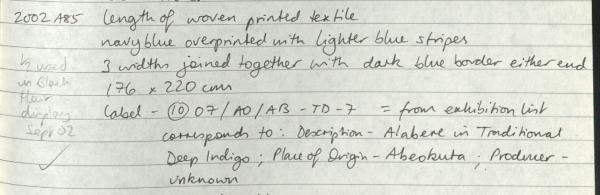 2002 A85 length of woven printed textile
navy blue overprinted with lighter blue stripes
3 widths joined together with dark blue border either end
176 x 220 cms
label - ⑩ 07/AO/AB - TD - 7 = from exhibition list
corresponds to: Description - Alabere in Traditional
Deep Indigo; Place of Origin - Abeokuta; Producer -
unknown
½ used
in Black
Hair
display
Sept 02
✓